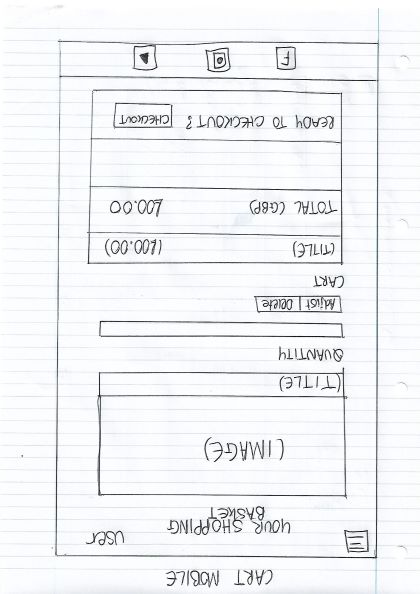 CART MOBILE
user
YOUR SHOPPING
BASKET
(IMAGE)
(TITLE)
QUANTITY
Adjust Delete
CART
(TITLE) (£00.00)
TOTAL (GBP) £00.00
READY TO CHECKOUT? CHECKOUT
F